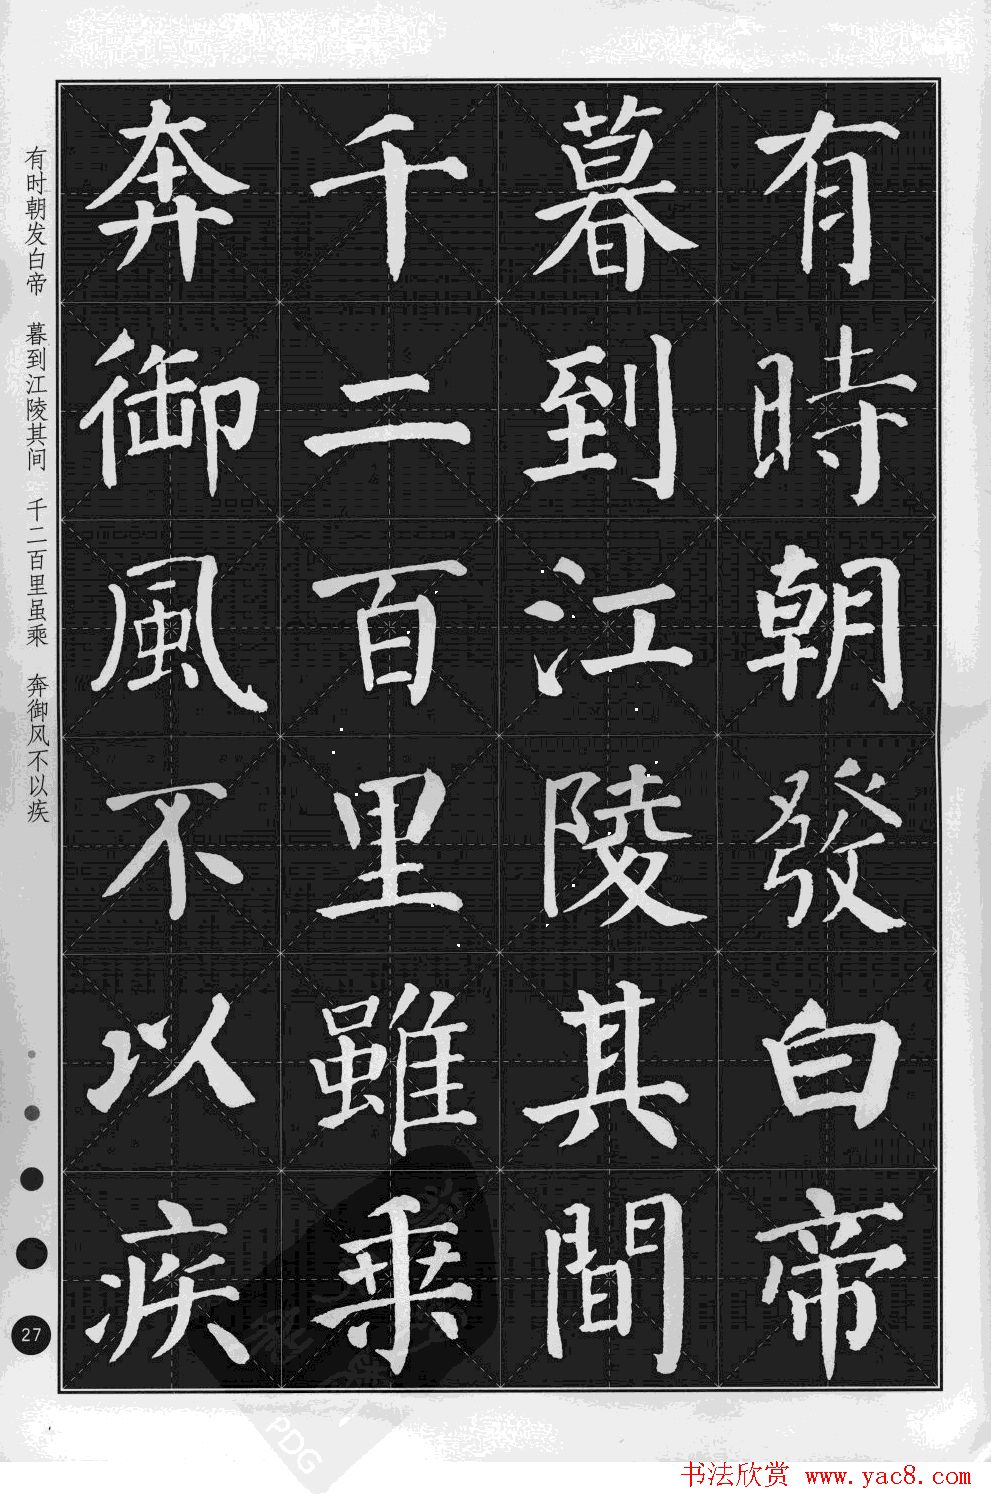 有時朝發白帝
暮到江陵其間
千二百里雖乗
奔御風不以疾
有时朝发白帝 暮到江陵其间 千二百里虽乘 奔御风不以疾
27
PDG
书法欣赏 www.yac8.com